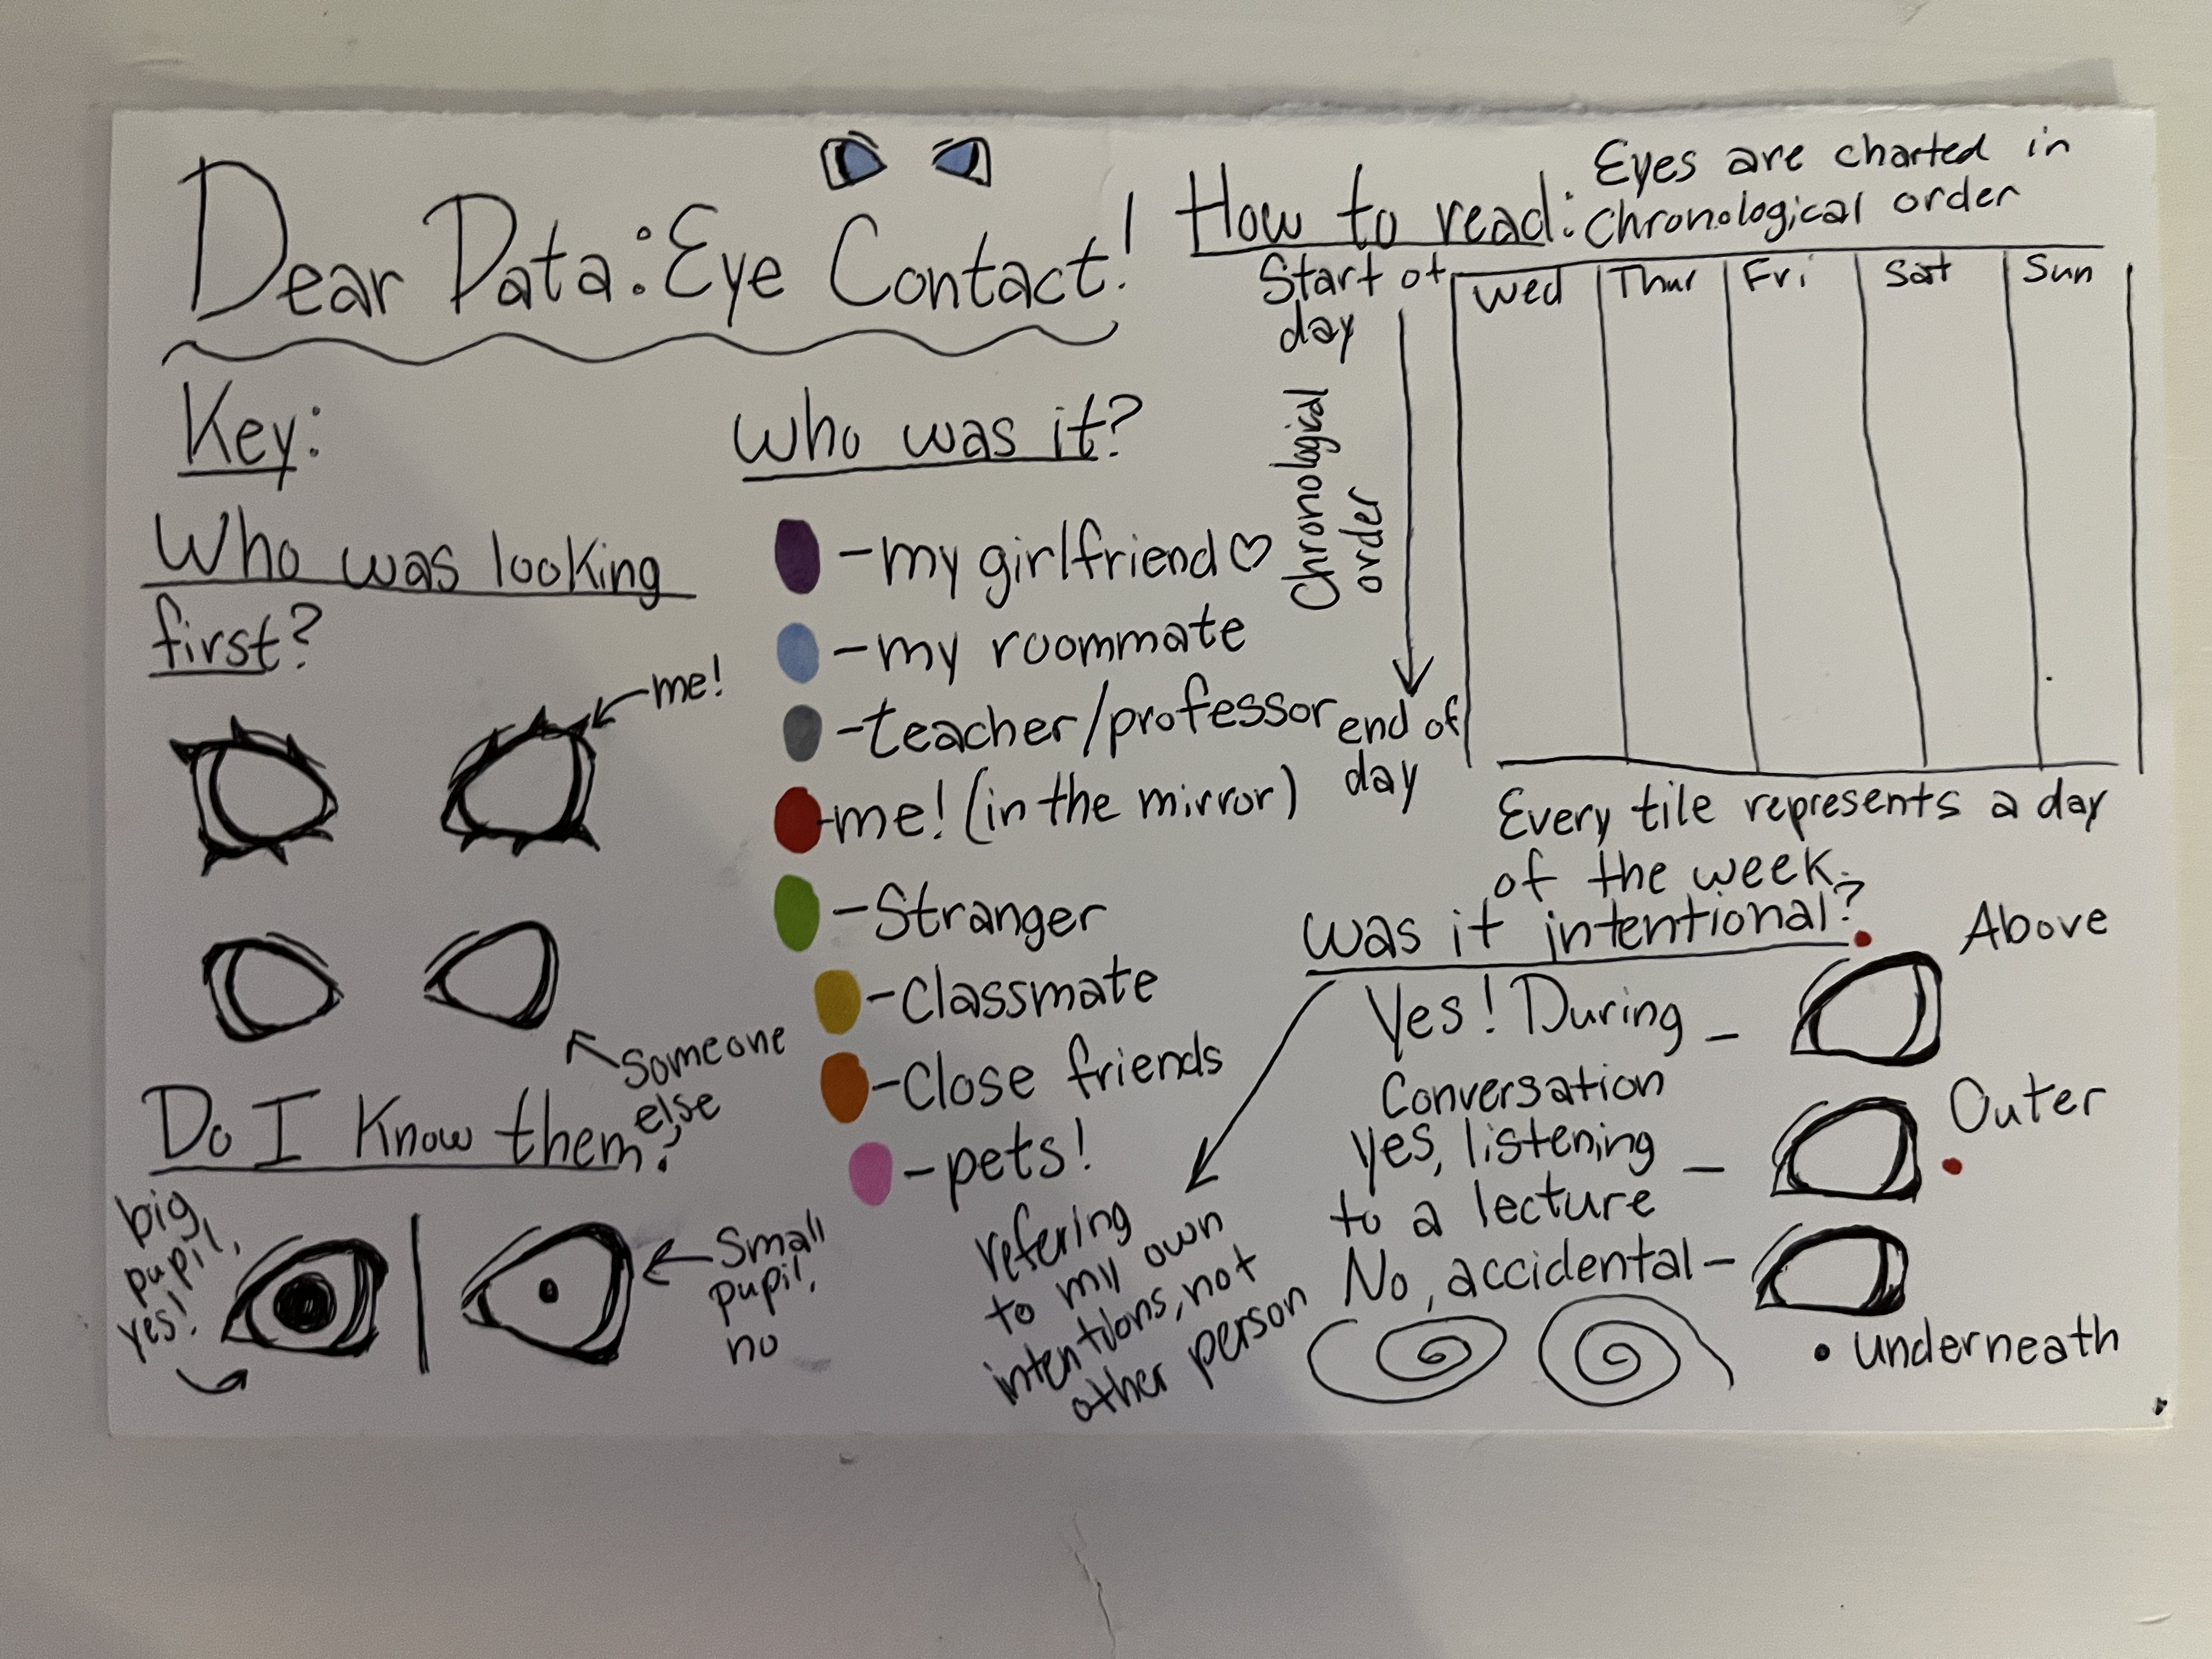 Dear Data: Eye Contact!
Key:
Who was looking
first?
me!
Someone
else
Do I Know them?
big
pupil,
yes!
Small
pupil,
no
Who was it?
-my girlfriend♡
-my roommate
-teacher/professor
-me! (in the mirror)
-Stranger
-Classmate
-Close friends
-pets!
How to read:
Eyes are charted in
Chronological order
Start of
day
Chronological
order
end of
day
Wed Thur Fri Sat Sun
Every tile represents a day
of the week.
Was it intentional?
refering
to my own
intentions, not
other person
Yes! During -
Conversation
Above
Yes, listening -
to a lecture
Outer
No, accidental -
underneath